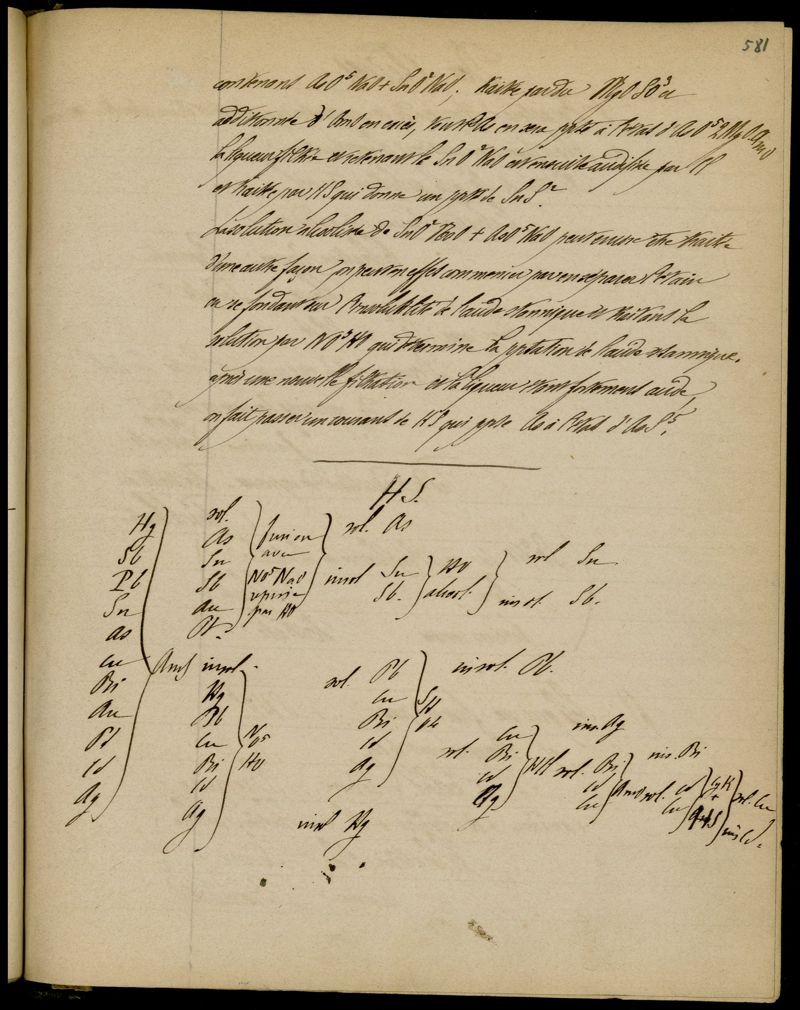 581
contenant AsO⁵ NaO + SnO² NaO, traitée par du MgO SO³ et
additionnée d'AmO en excès, tout l'As en sera ppté à l'état d'AsO⁵ 2MgO.AmO
la liqueur filtrée et retenant le SnO² NaO est ensuite acidifiée par Cl
et traitée par HS qui donne un ppté de SnS².
La solution alcaline de SnO² NaO + AsO⁵ NaO peut encore être traitée
d'une autre façon, on peut en effet commencer par en séparer l'étain
en se fondant sur l'insolubilité de l'acide stannique et traitant la
solution par NO⁵ HO qui détermine la pptation de l'acide stannique.
après une nouvelle filtration et la liqueur étant fortement acide,
on fait passer un courant de HS qui ppte As à l'état d'AsS⁵.
HS.
Hg
Sb
Pb
Sn
As
Cu
Bi
Au
Pt
Cd
Ag
AmS
sol.
As
Sn
Sb
Au
Pt.
fusion
avec
NO⁵ NaO
reprise
par HO
sol. As
insol Sn
Sb.
HO
alcool.
sol Sn
insol. Sb.
insol.
Hg
Pb
Cu
Bi
Cd
Ag
NO⁵
HO
sol. Pb
Cu
Bi
Cd
Ag
insol Hg
insol. Pb.
sol. Cu
Bi
Cd
Ag
HCl
ins Ag
sol. Bi
Cd
Cu
AmO
ins. Bi
sol. Cd
Cu
CyK
+
HS
sol. Cu
ins Cd.